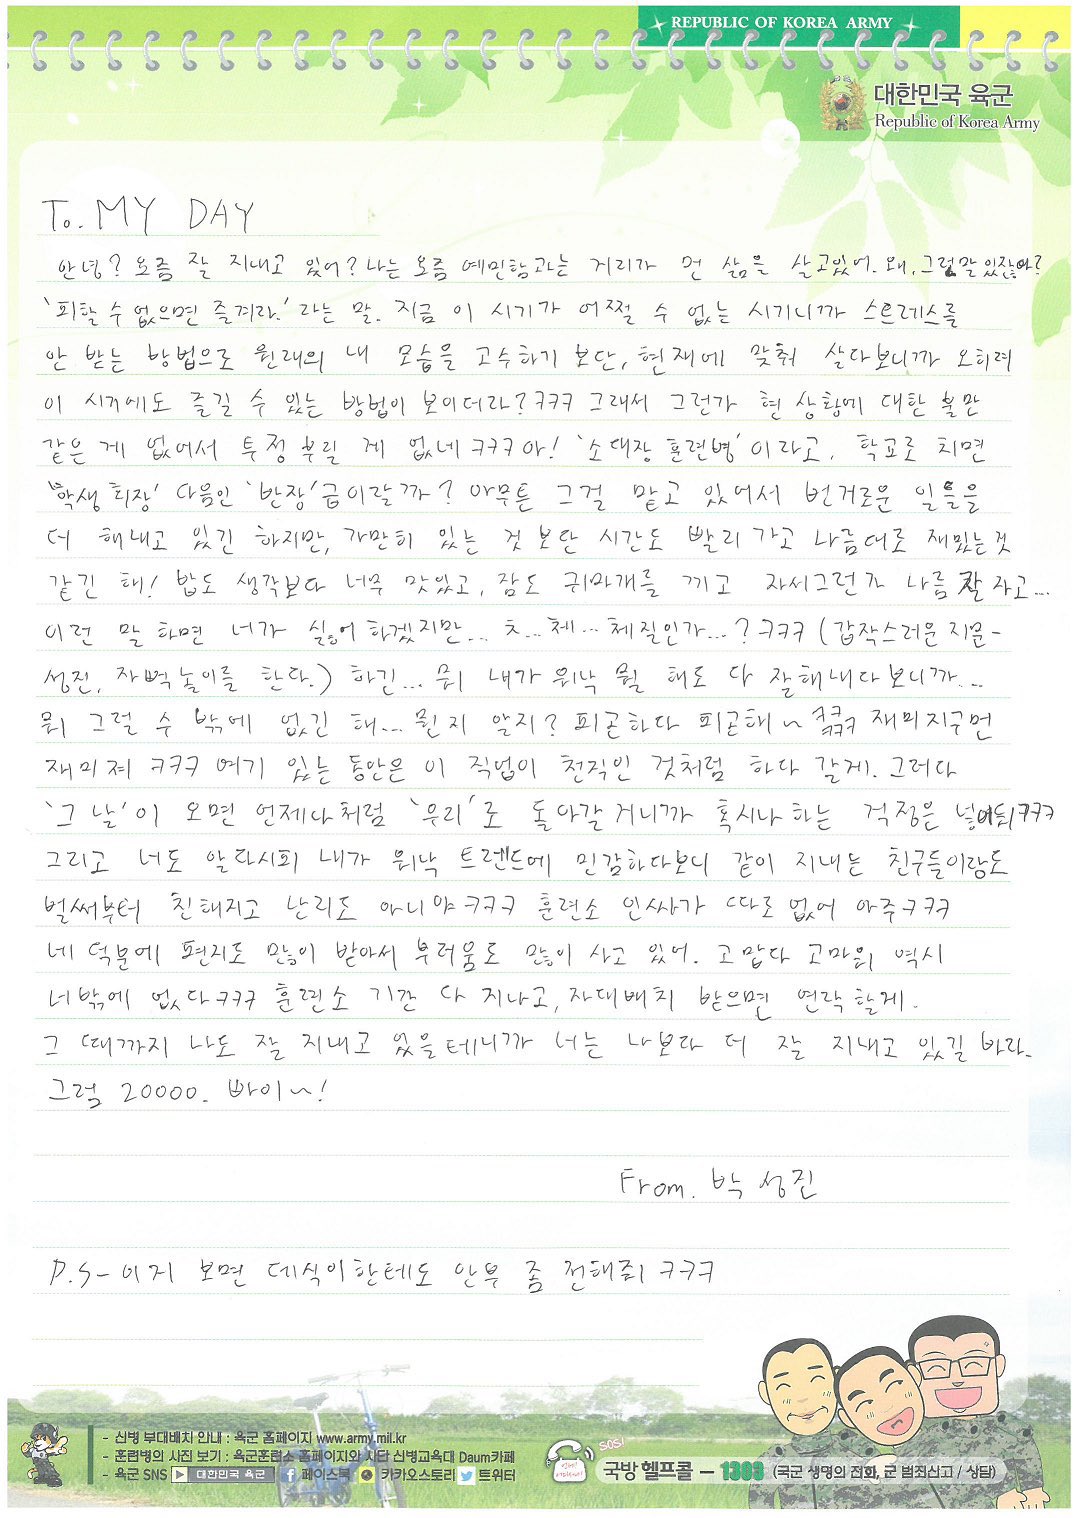 REPUBLIC OF KOREA ARMY
대한민국 육군
Republic of Korea Army
To. MY DAY
안녕? 요즘 잘 지내고 있어? 나는 요즘 예민함과는 거리가 먼 삶을 살고있어. 왜, 그런말 있잖아?
'피할 수 없으면 즐겨라.' 라는 말. 지금 이 시기가 어쩔 수 없는 시기니까 스트레스를
안 받는 방법으로 원래의 내 모습을 고수하기 보단, 현재에 맞춰 살다보니까 오히려
이 시기에도 즐길 수 있는 방법이 보이더라? ㅋㅋㅋ 그래서 그런가 현 상황에 대한 불만
같은 게 없어서 투정 부릴 게 없네 ㅋㅋㅋ 아! '소대장 훈련병' 이라고, 학교로 치면
'학생 회장' 다음인 '반장' 급이랄까? 아무튼 그걸 맡고 있어서 번거로운 일들을
더 해내고 있긴 하지만, 가만히 있는 것 보단 시간도 빨리 가고 나름대로 재밌는것
같긴 해! 밥도 생각보다 너무 맛있고, 잠도 귀마개를 끼고 자서그런가 나름 잘 자고...
이런 말 하면 너가 싫어하겠지만... ㅊ...체...체질인가...? ㅋㅋㅋ (갑작스러운 지문-
성진, 자벅놀이를 한다.) 하긴... 뭐 내가 워낙 뭘 해도 다 잘해내다보니까...
뭐 그럴 수 밖에 없긴 해... 뭔지 알지? 피곤하다 피곤해~ ㅋㅋㅋㅋㅋㅋ 재미지구먼
재미져 ㅋㅋㅋ 여기 있는 동안은 이 직업이 천직인 것처럼 하다 갈게. 그러다
'그 날'이 오면 언제나처럼 '우리'로 돌아갈 거니까 혹시나 하는 걱정은 넣어둬 ㅋㅋㅋ
그리고 너도 알다시피 내가 워낙 트렌드에 민감하다보니 같이 지내는 친구들이랑도
벌써부터 친해지고 난리도 아니야 ㅋㅋㅋ 훈련소 인싸가 따로 없어 아주 ㅋㅋㅋ
네 덕분에 편지도 많이 받아서 부러움도 많이 사고 있어. 고맙다 고마워 역시
너밖에 없다 ㅋㅋㅋ 훈련소 기간 다 지나고, 자대배치 받으면 연락할게.
그 때까지 나도 잘 지내고 있을테니까 너는 나보다 더 잘 지내고 있길 바라.
그럼 20000. 빠이~!
From. 박성진
P.S - 이거 보면 데식이한테도 안부 좀 전해줘 ㅋㅋㅋ
- 신병 부대배치 안내 : 육군 홈페이지 www.army.mil.kr
- 훈련병의 사진 보기 : 육군훈련소 홈페이지와 사단 신병교육대 Daum카페
- 육군 SNS 대한민국 육군 페이스북 카카오스토리 트위터
SOS!
국방헬프콜 - 1303 (국군 생명의 전화, 군 범죄신고 / 상담)